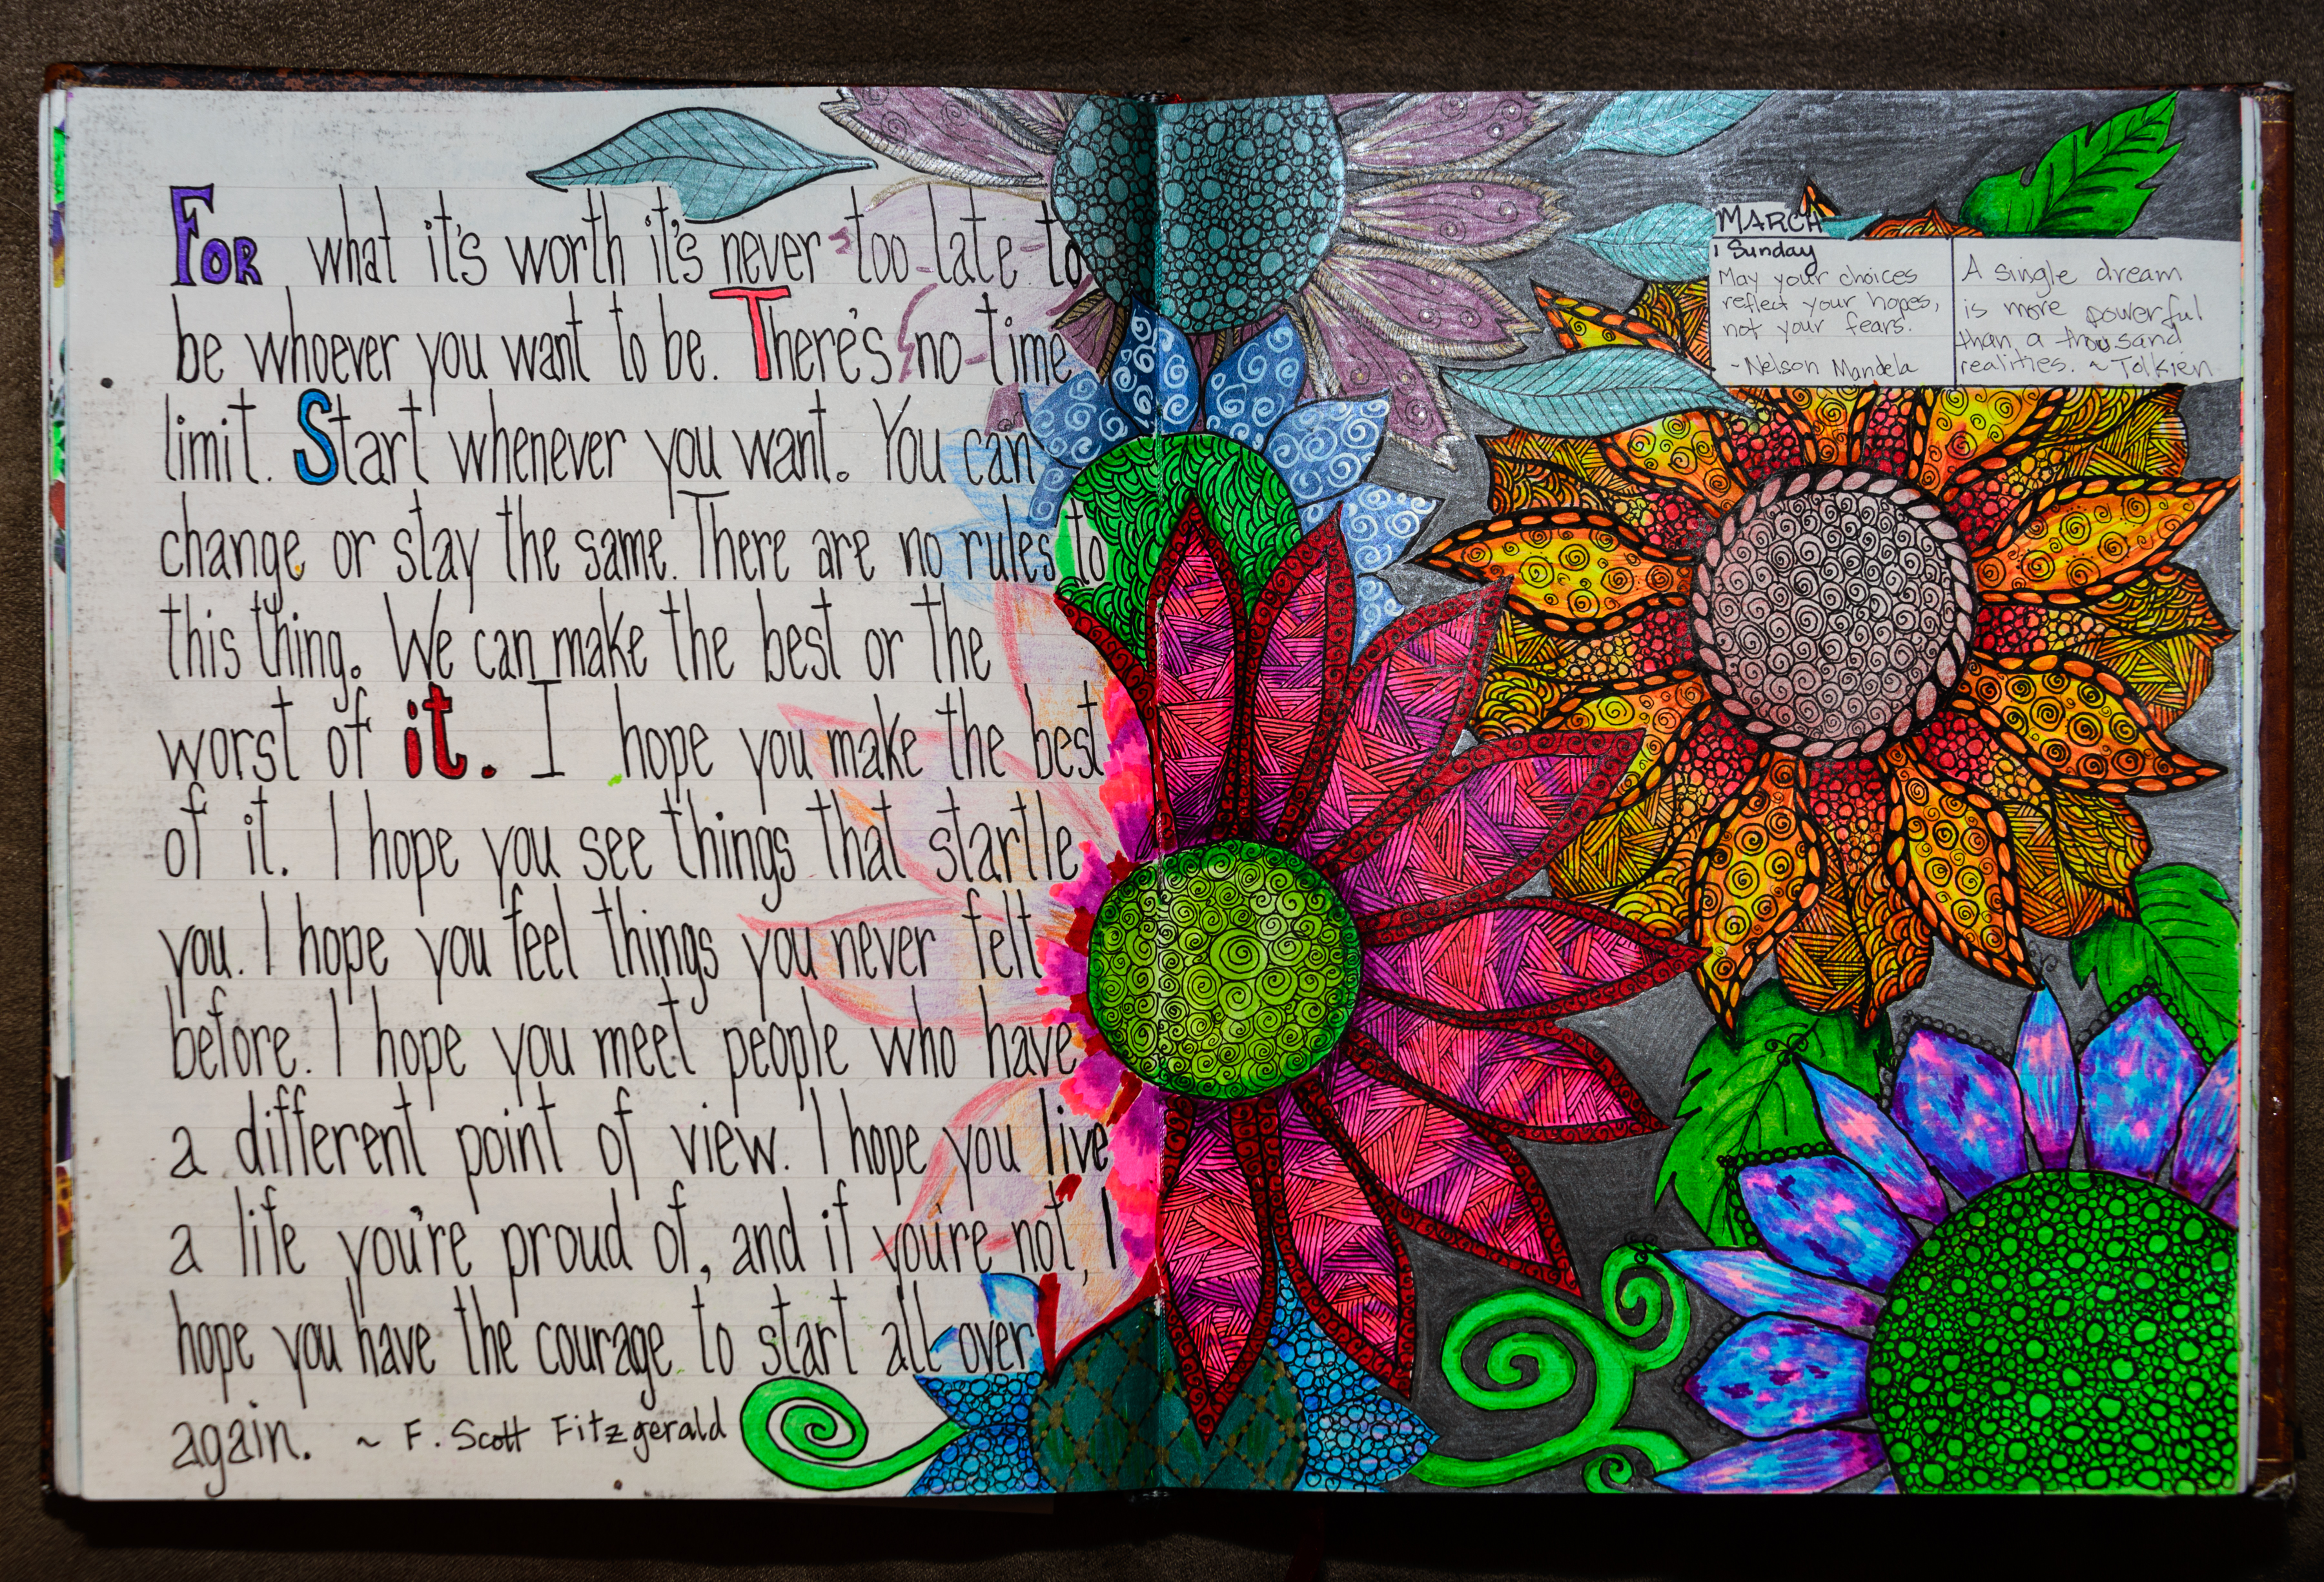 FOR what it's worth it's never too late to
be whoever you want to be. There's no time
limit. Start whenever you want. You can
change or stay the same. There are no rules to
this thing. We can make the best or the
worst of it. I hope you make the best
of it. I hope you see things that startle
you. I hope you feel things you never felt
before. I hope you meet people who have
a different point of view. I hope you live
a life you're proud of, and if you're not, I
hope you have the courage to start all over
again. ~ F. Scott Fitzgerald
MARCH
1 Sunday
May your choices
reflect your hopes,
not your fears.
~ Nelson Mandela
A single dream
is more powerful
than a thousand
realities. ~ Tolkien